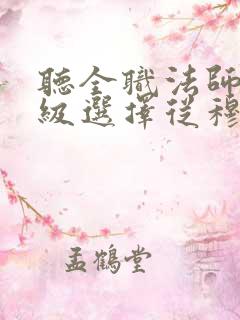 聽全職法師
級選擇從穆
孟鶴堂